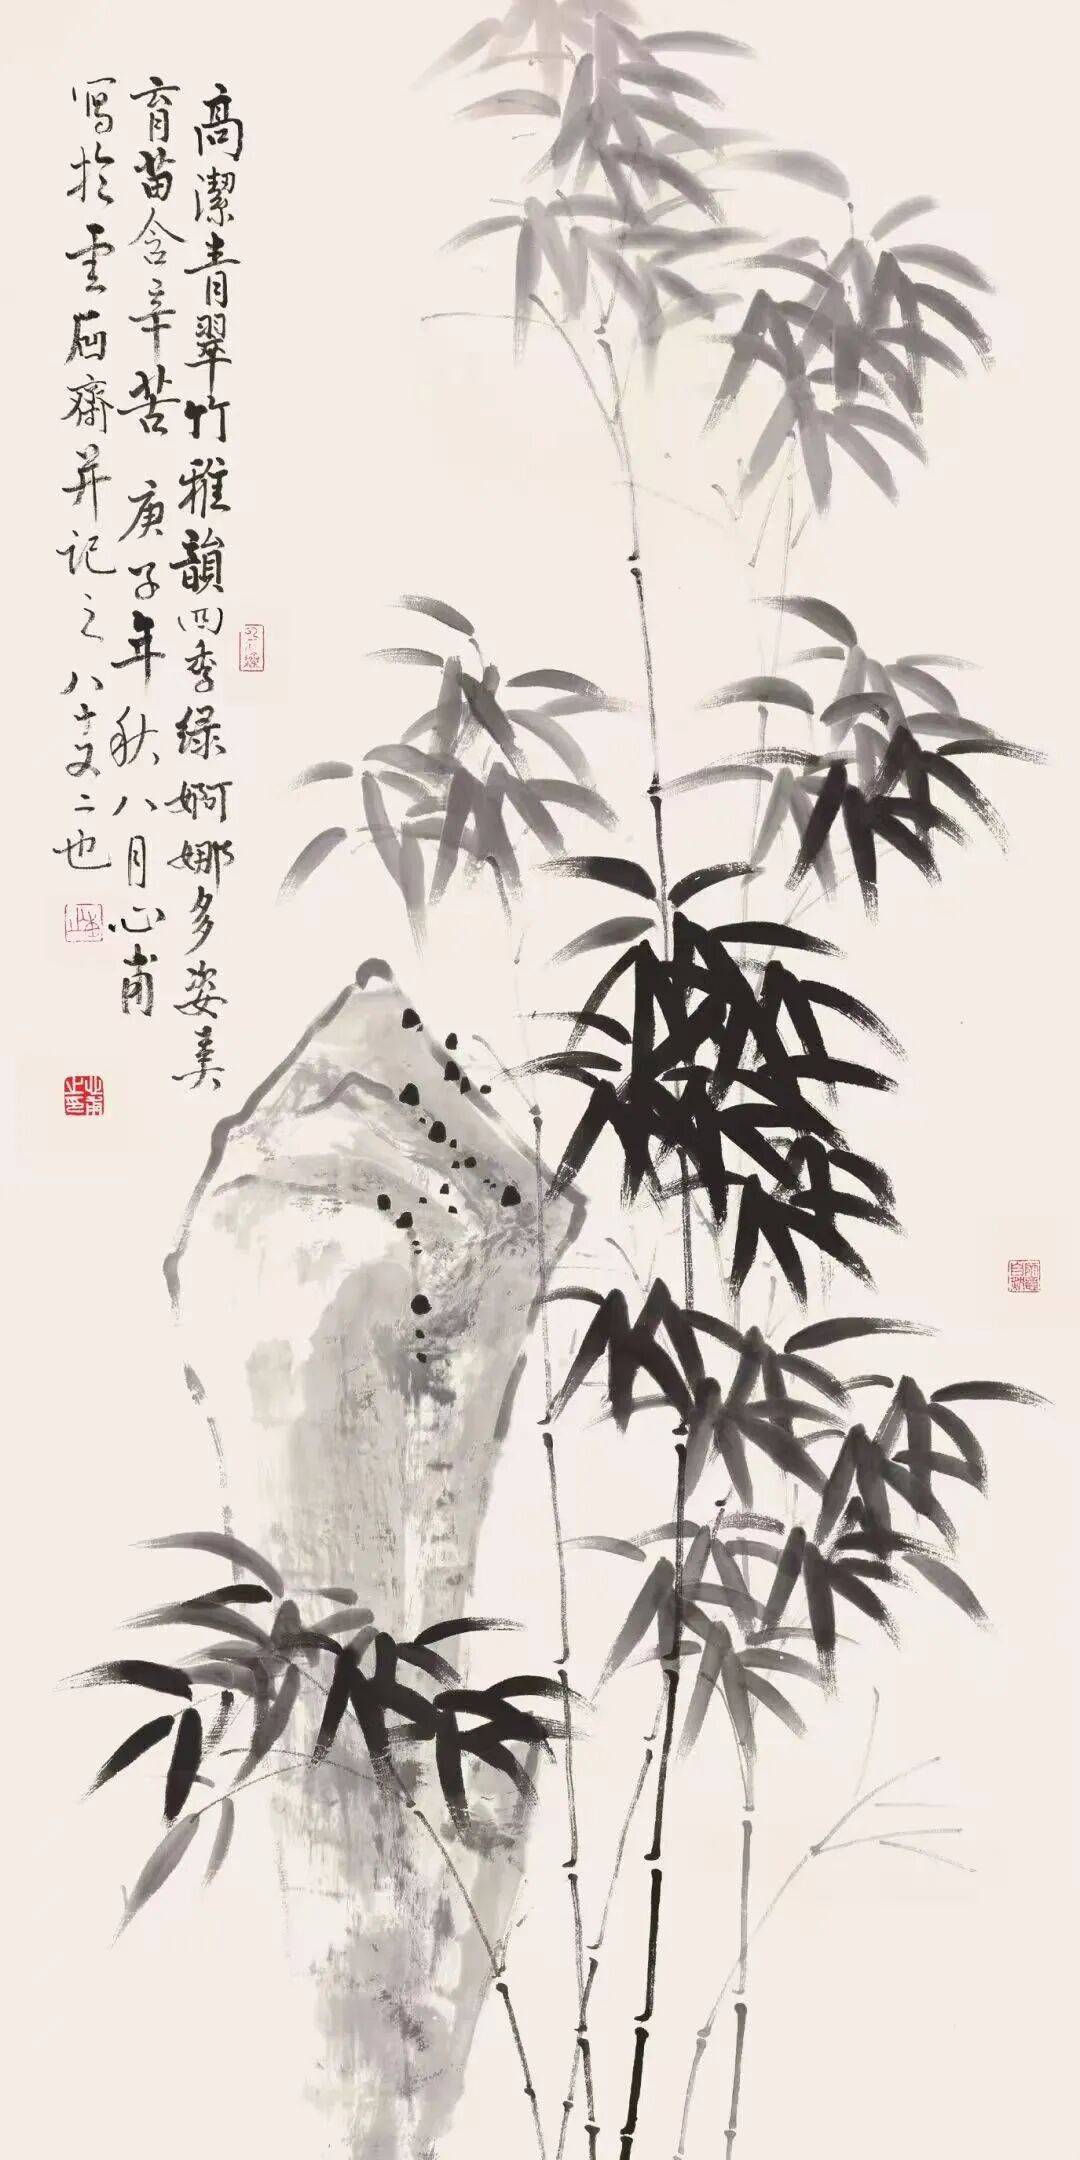 高潔青翠竹雅韻四季绿婀娜多姿美
育苗含辛苦 庚子年秋八月心甫
寫於雲石齋并记之八十又二也